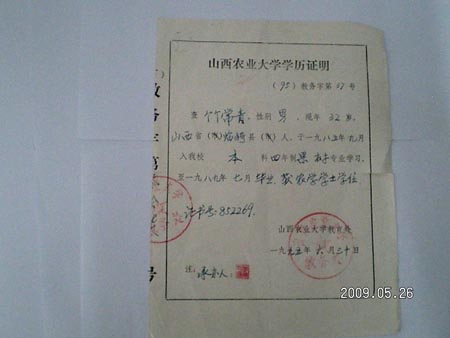 山西农业大学学历证明
(95)教务字第 号
查 竹常青,性别 男,现年 32 岁,
山西省(市)临猗县(市)人,于一九八五年九月
入我校 本 科四年制果树专业学习,
至一九八九年七月毕业,获农学学士学位
证书号:852269.
山西农业大学教务处
一九九五年六月三十日
注: 承办人:
教务字第
号
2009.05.26